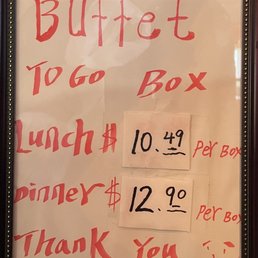 Buffet
To Go Box
Lunch $ 10.49 Per Box
Dinner $ 12.90 Per Box
Thank You